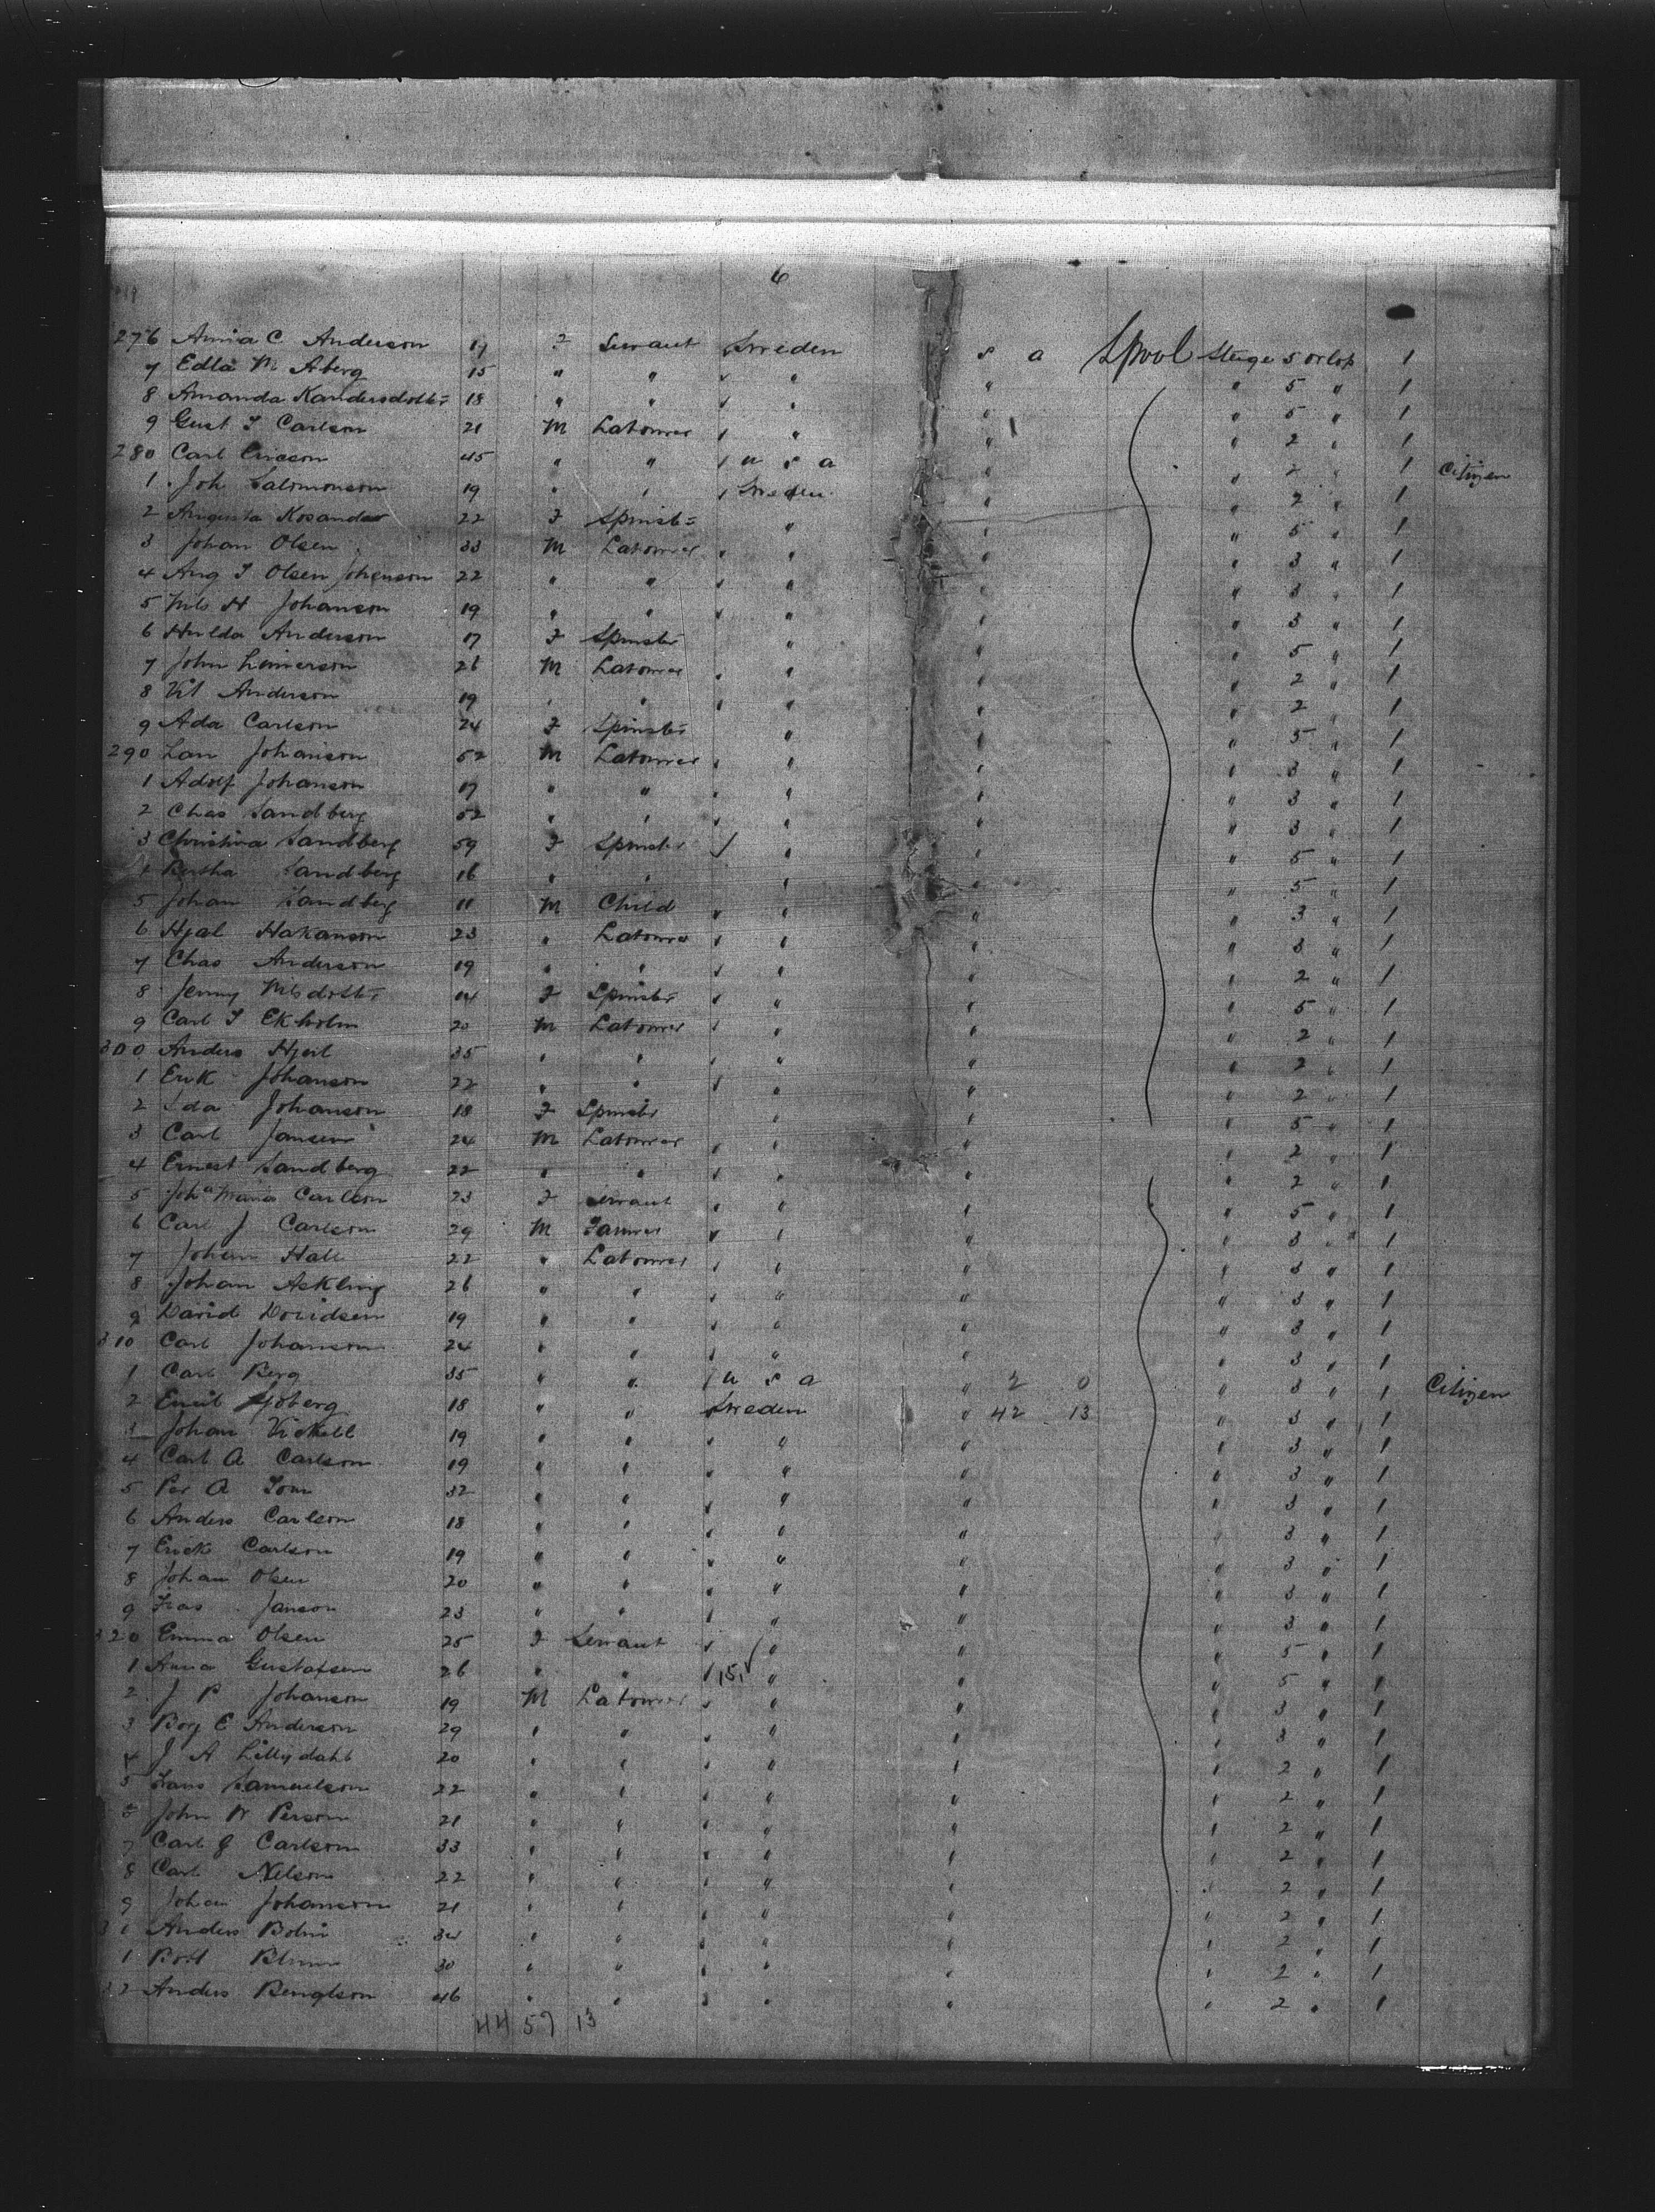 6
276 Anna C Anderson 19 F Servant Sweden s a Lpool Steige 5 orlop 1
7 Edla M Aberg 15 " " " " " 5 " 1
8 Amanda 18 " " " " " 5 " 1
9 Gust F Carlson 21 M Labourer " " " 2 " 1
280 Carl Ericson 45 " " u s a " " 2 " 1 Citizen
1 Joh Salomonson 19 " " Sweden " " 2 " 1
2 Augusta 22 F Spinstr " " " 5 " 1
3 Johan Olsen 33 M Labourer " " " 3 " 1
4 Aug F Olsen Johanson 22 " " " " " 3 " 1
5 Nils H Johanson 19 " " " " " 3 " 1
6 Hulda Anderson 17 F Spinstr " " " 5 " 1
7 John 26 M Labourer " " " 2 " 1
8 Vil Anderson 19 " " " " " 2 " 1
9 Ada Carlson 24 F Spinstr " " " 5 " 1
290 Lars Johanson 52 M Labourer " " " 3 " 1
1 Adolf Johanson 17 " " " " " 3 " 1
2 Chas Sandberg 52 " " " " " 3 " 1
3 Christina Sandberg 59 F Spinster " " " 5 " 1
4 Bertha Sandberg 16 " " " " " 5 " 1
5 Johan Sandberg 11 M Child " " " 3 " 1
6 Hjal Hakanson 23 " Labourer " " " 3 " 1
7 Chas Anderson 19 " " " " " 2 " 1
8 Jenny Nilsdottr 14 F Spinstr " " " 5 " 1
9 Carl F Ekholm 20 M Labourer " " " 2 " 1
300 Anders 35 " " " " " 2 " 1
1 Erik Johanson 22 " " " " " 2 " 1
2 Ida Johanson 18 F Spinstr " " " 5 " 1
3 Carl Jansen 24 M Labourer " " " 2 " 1
4 Ernest Sandberg 22 " " " " " 2 " 1
5 Joha Maria Carlson 23 F Servant " " " 5 " 1
6 Carl J Carlson 29 M Farmer " " " 3 " 1
7 Johan Hall 22 " Labourer " " " 3 " 1
8 Johan Askling 26 " " " " " 3 " 1
9 David Davidsen 19 " " " " " 3 " 1
310 Carl Johanson 24 " " " " " 3 " 1
1 Carl Berg 35 " " u s a " 2 0 " 3 " 1 Citizen
2 Emil Sjöberg 18 " " Sweden " 42 13 " 3 " 1
3 Johan 19 " " " " " 3 " 1
4 Carl A Carlson 19 " " " " " 3 " 1
5 Per A 32 " " " " " 3 " 1
6 Anders Carlson 18 " " " " " 3 " 1
7 Erick Carlson 19 " " " " " 3 " 1
8 Johan Olsen 20 " " " " " 3 " 1
9 Janson 23 " " " " " 3 " 1
320 Emma Olsen 25 F Servant " " " 5 " 1
1 Anna Gustafsen 26 " " 15 " " " 5 " 1
2 J P Johanson 19 M Labourer " " " 3 " 1
3 E Anderson 29 " " " " " 3 " 1
4 J A Lillydahl 20 " " " " " 2 " 1
5 Samuelson 22 " " " " " 2 " 1
John W Person 21 " " " " " 2 " 1
7 Carl G Carlson 33 " " " " " 2 " 1
8 Carl Nelson 22 " " " " " 2 " 1
9 Johan Johanson 21 " " " " " 2 " 1
Anders 34 " " " " " 2 " 1
1 30 " " " " " 2 " 1
Anders Bengtson 46 " " " " " 2 " 1
44 57 13